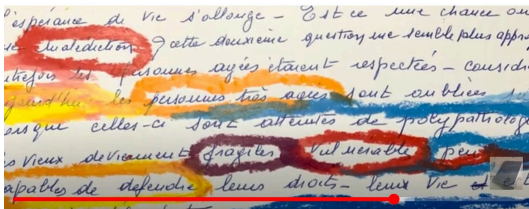 l'espérance de vie s'allonge - Est ce une chance ou
malédiction ? cette deuxième question me semble plus appro
les personnes agées étaient respectées - consid
aujourd'hui les personnes très agées sont oubliées
lorsque celles-ci sont atteintes de polypatholog
s vieux deviennent fragiles vulnérables peu
capables de défendre leurs droits - leur vie et